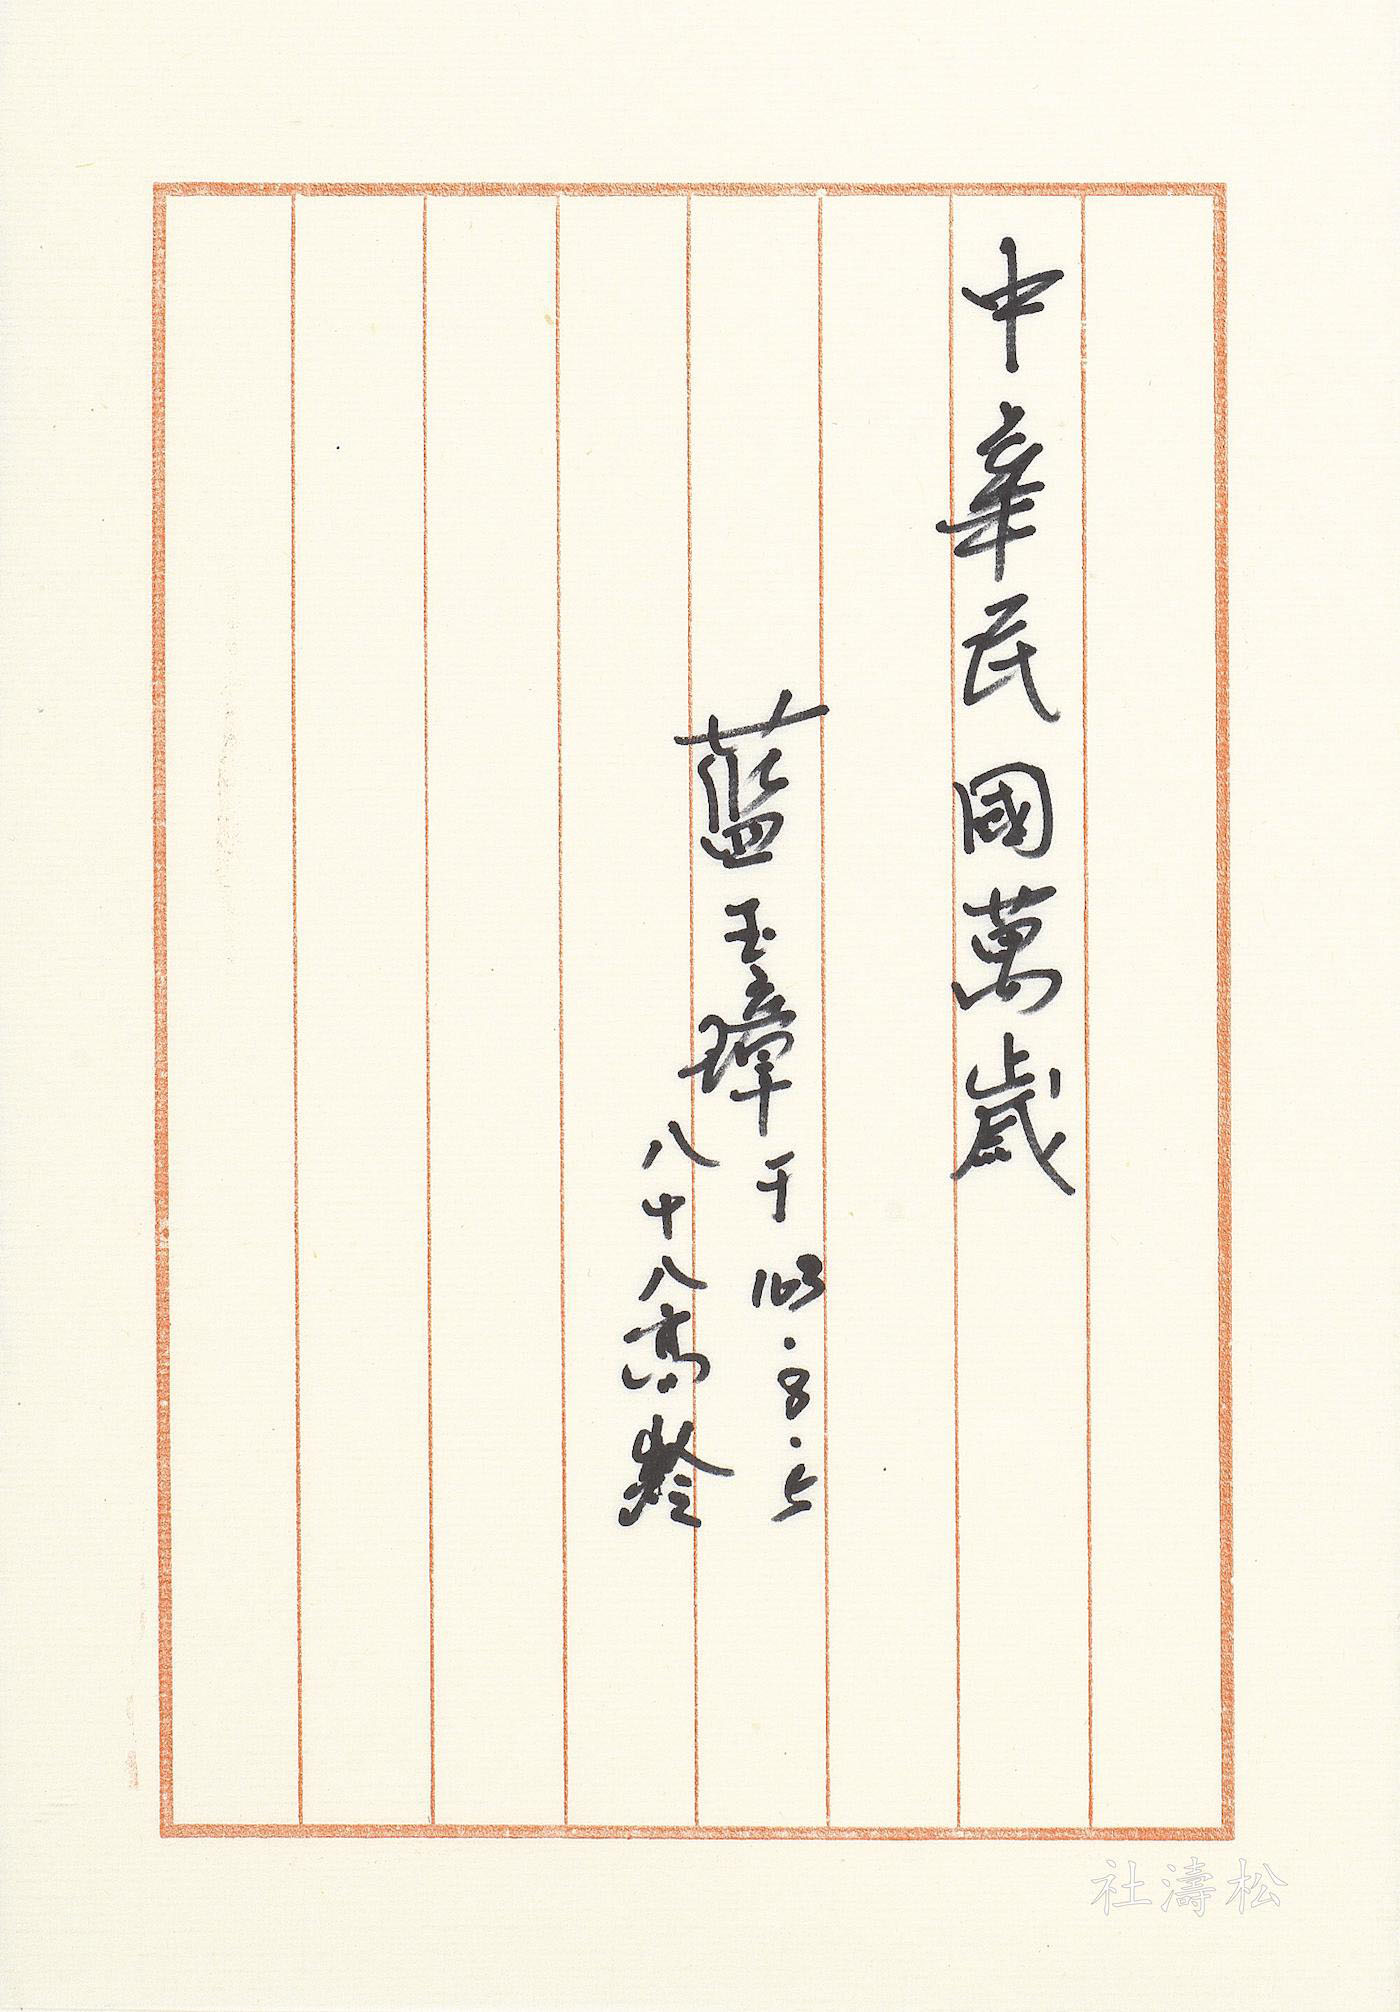 中華民國萬歲
藍玉璋于103.8.5
八十八高齡
松濤社